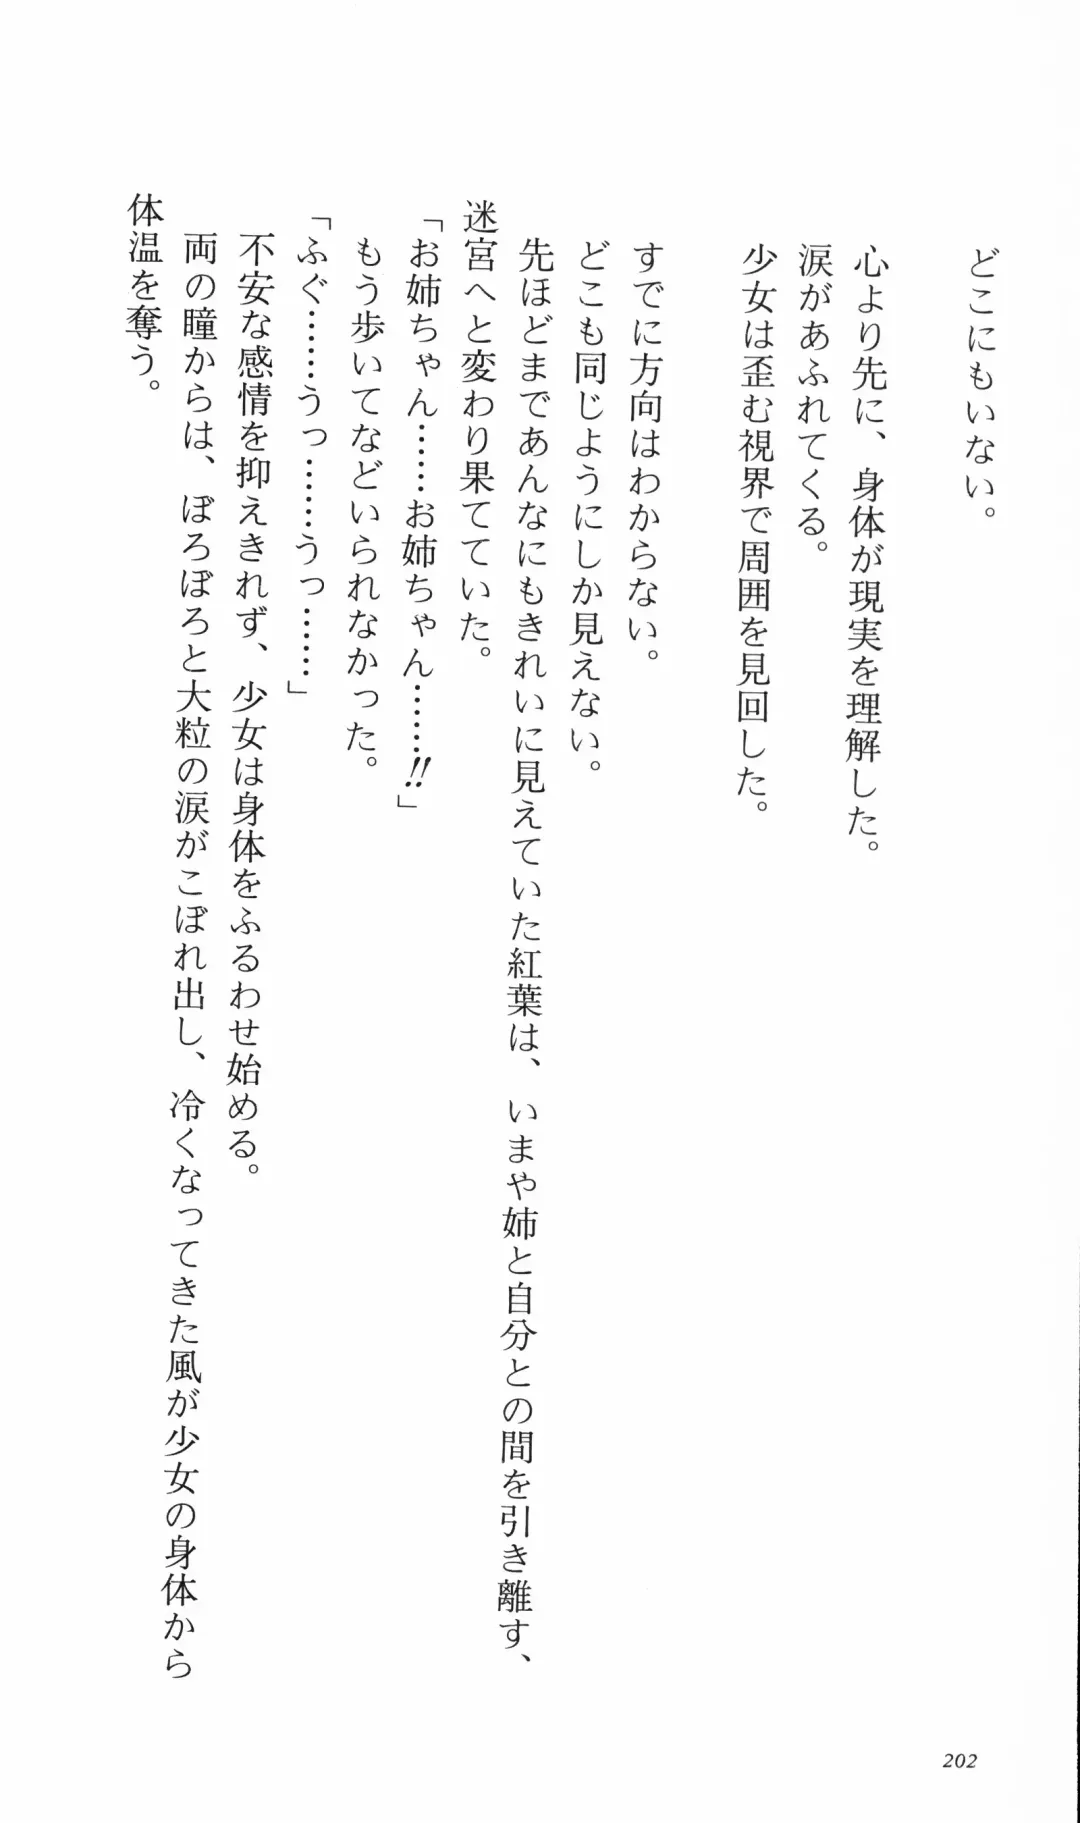 どこにもいない。
心より先に、身体が現実を理解した。
涙があふれてくる。
少女は歪む視界で周囲を見回した。
すでに方向はわからない。
どこも同じようにしか見えない。
先ほどまであんなにもきれいに見えていた紅葉は、いまや姉と自分との間を引き離す、
迷宮へと変わり果てていた。
「お姉ちゃん……お姉ちゃん……!!」
もう歩いてなどいられなかった。
「ふぐ……うっ……うっ……」
不安な感情を抑えきれず、少女は身体をふるわせ始める。
両の瞳からは、ぼろぼろと大粒の涙がこぼれ出し、冷くなってきた風が少女の身体から
体温を奪う。
202